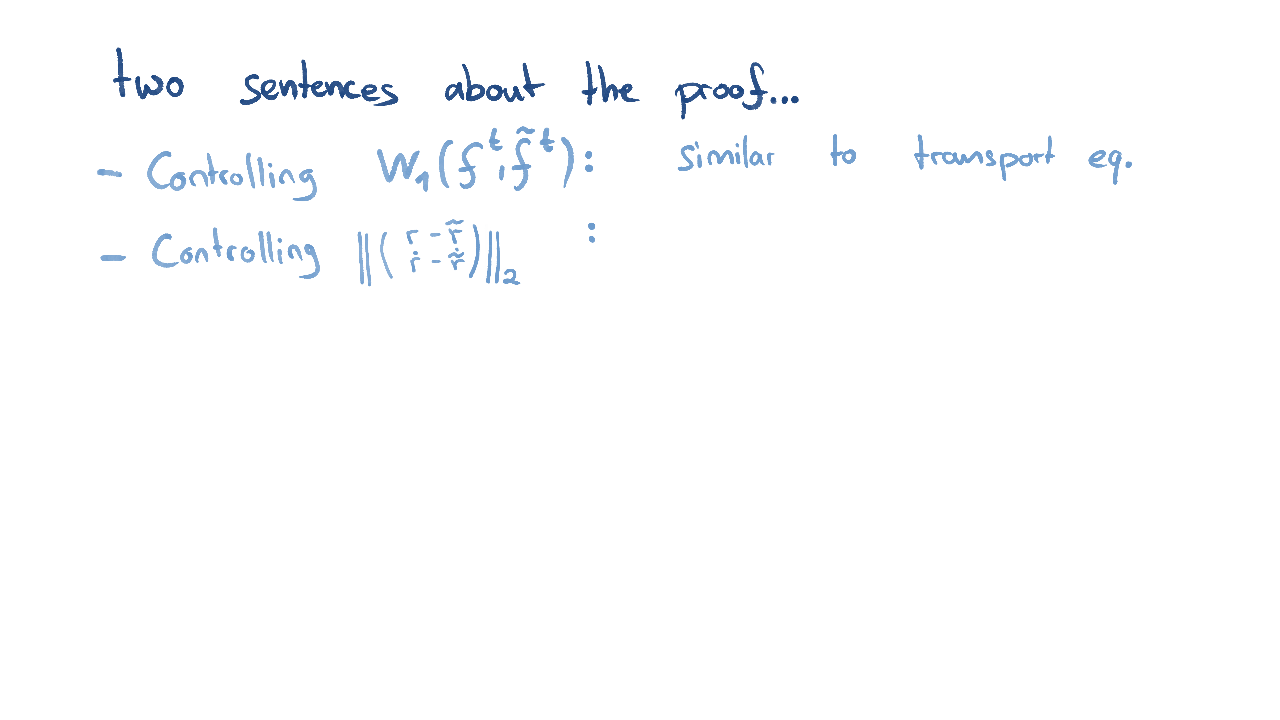 two sentences about the proof...
- Controlling W₁(fᵗ, f̃ᵗ): similar to transport eq.
- Controlling ‖( r - r̃
ṙ - ṙ̃ )‖₂ :